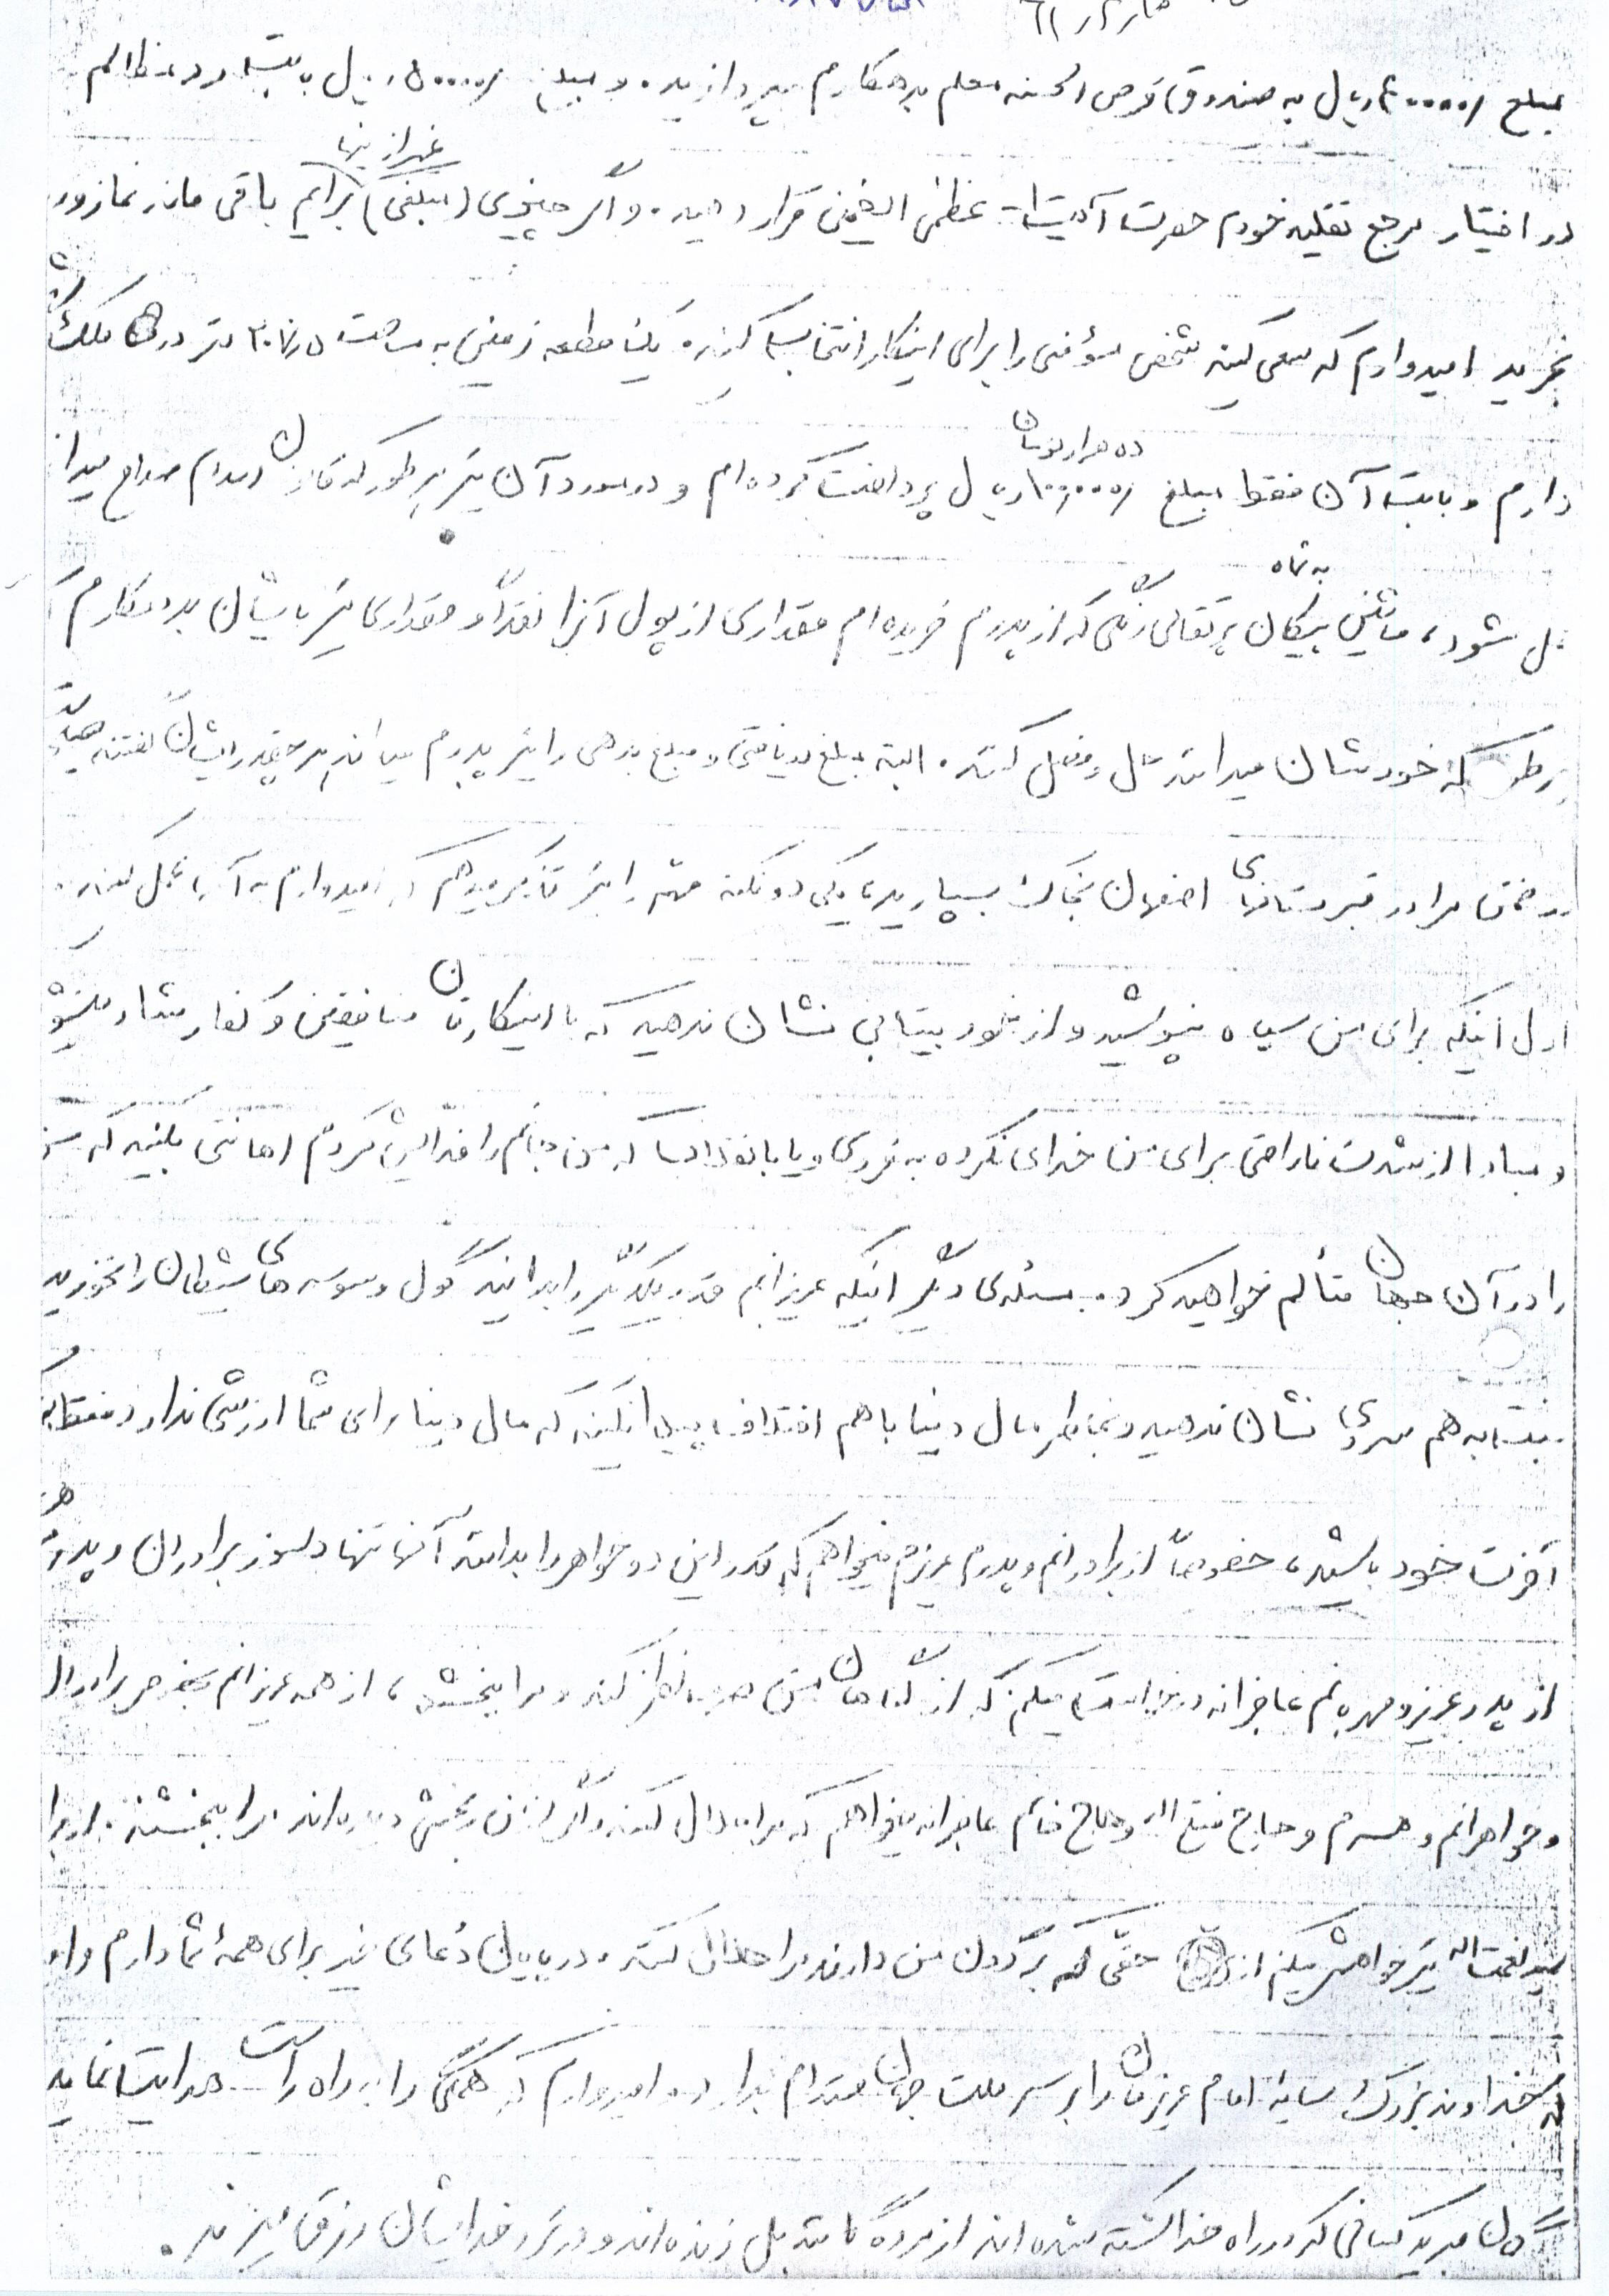 مبلغ ۴۰۰۰۰/ ریال به صندوق قرض الحسنه معلم بدهکارم بپردازید. و مبلغ ۵۰۰۰۰/ ریال بابت رد مظالم
در اختیار مرجع تقلید خودم حضرت آیت‌ا... عظمی الخمینی قرار دهید. و اگر چیزی (مبلغی) غیر از اینها برایم باقی ماند نماز و روزه
بخرید امیدوارم که سعی کنید شخص مؤمنی را برای اینکار انتخاب کنید. یک قطعه زمینی به مساحت ۲۰۷/۵ متر در ملک‌شهر
دارم و بابت آن فقط مبلغ ۱۰۰،۰۰۰/ ریال ده هزار تومان پرداخت کرده‌ام و در مورد آن نیز هر طور که پدرم صلاح میداند
عمل شود، ماشین پیکان پرتقالی رنگی که از پدرم خریده‌ام مقداری از پول آنرا نقداً و مقداری نیز بایشان بدهکارم
هر طور که خودشان میدانند عمل کنند. البته مبلغ دریافتی و مبلغ بدهی را نیز پدرم میداند هر چقدر ایشان گفتند
در ضمن مرا در قبرستانهای اصفهان بخاک بسپارید یکی دو نکته مهم را نیز تذکر میدهم که امیدوارم به آن عمل کنید.
اول اینکه برای من سیاه نپوشید و از خود بیتابی نشان ندهید که با اینکارتان منافقین و کفار شاد میشوند
و مبادا از شدت ناراحتی برای من خدای نکرده به فردی و یا بانقلاب که من جانم را فدایش کردم اهانتی بکنید که من
را در آن جهان متألم خواهید کرد. مسئله‌ی دیگر اینکه عزیزانم قدر یکدیگر را بدانید گول وسوسه‌های شیطان را نخورید
نسبت به هم سردی نشان ندهید و بخاطر مال دنیا با هم اختلاف پیدا نکنید که مال دنیا برای شما ارزشی ندارد فقط بفکر
آخرت خود باشید، خصوصاً از برادرانم و پدرم عزیزم میخواهم که قدر این دو خواهر را بدانند آنها تنها دلسوز برادران و پدر
از پدر عزیز و مهربانم عاجزانه درخواست میکنم که از گناهان من صرف نظر کند و مرا ببخشد، از همه عزیزانم بخصوص برادرانم
و خواهرانم و همسرم و حاج فتح اله و حاج خانم عاجزانه میخواهم که مرا حلال کنند و اگر از من رنجشی دیده‌اند مرا ببخشند. از برادرم
سید نعمت‌اله نیز خواهش میکنم از حقّی که بر گردن من دارند مرا حلال کنند. در پایان دُعای خیر برای همهٔ شما دارم و از
خداوند بزرگ سایهٔ امام عزیزمان را بر سر ملت جهان مستدام بدارد. امیدوارم که همگی را براه راست هدایت نماید
گمان مبرید کسانی که در راه خدا کشته شده‌اند از مردگانند بلکه زنده‌اند و در نزد خدایشان رزق میبرند.